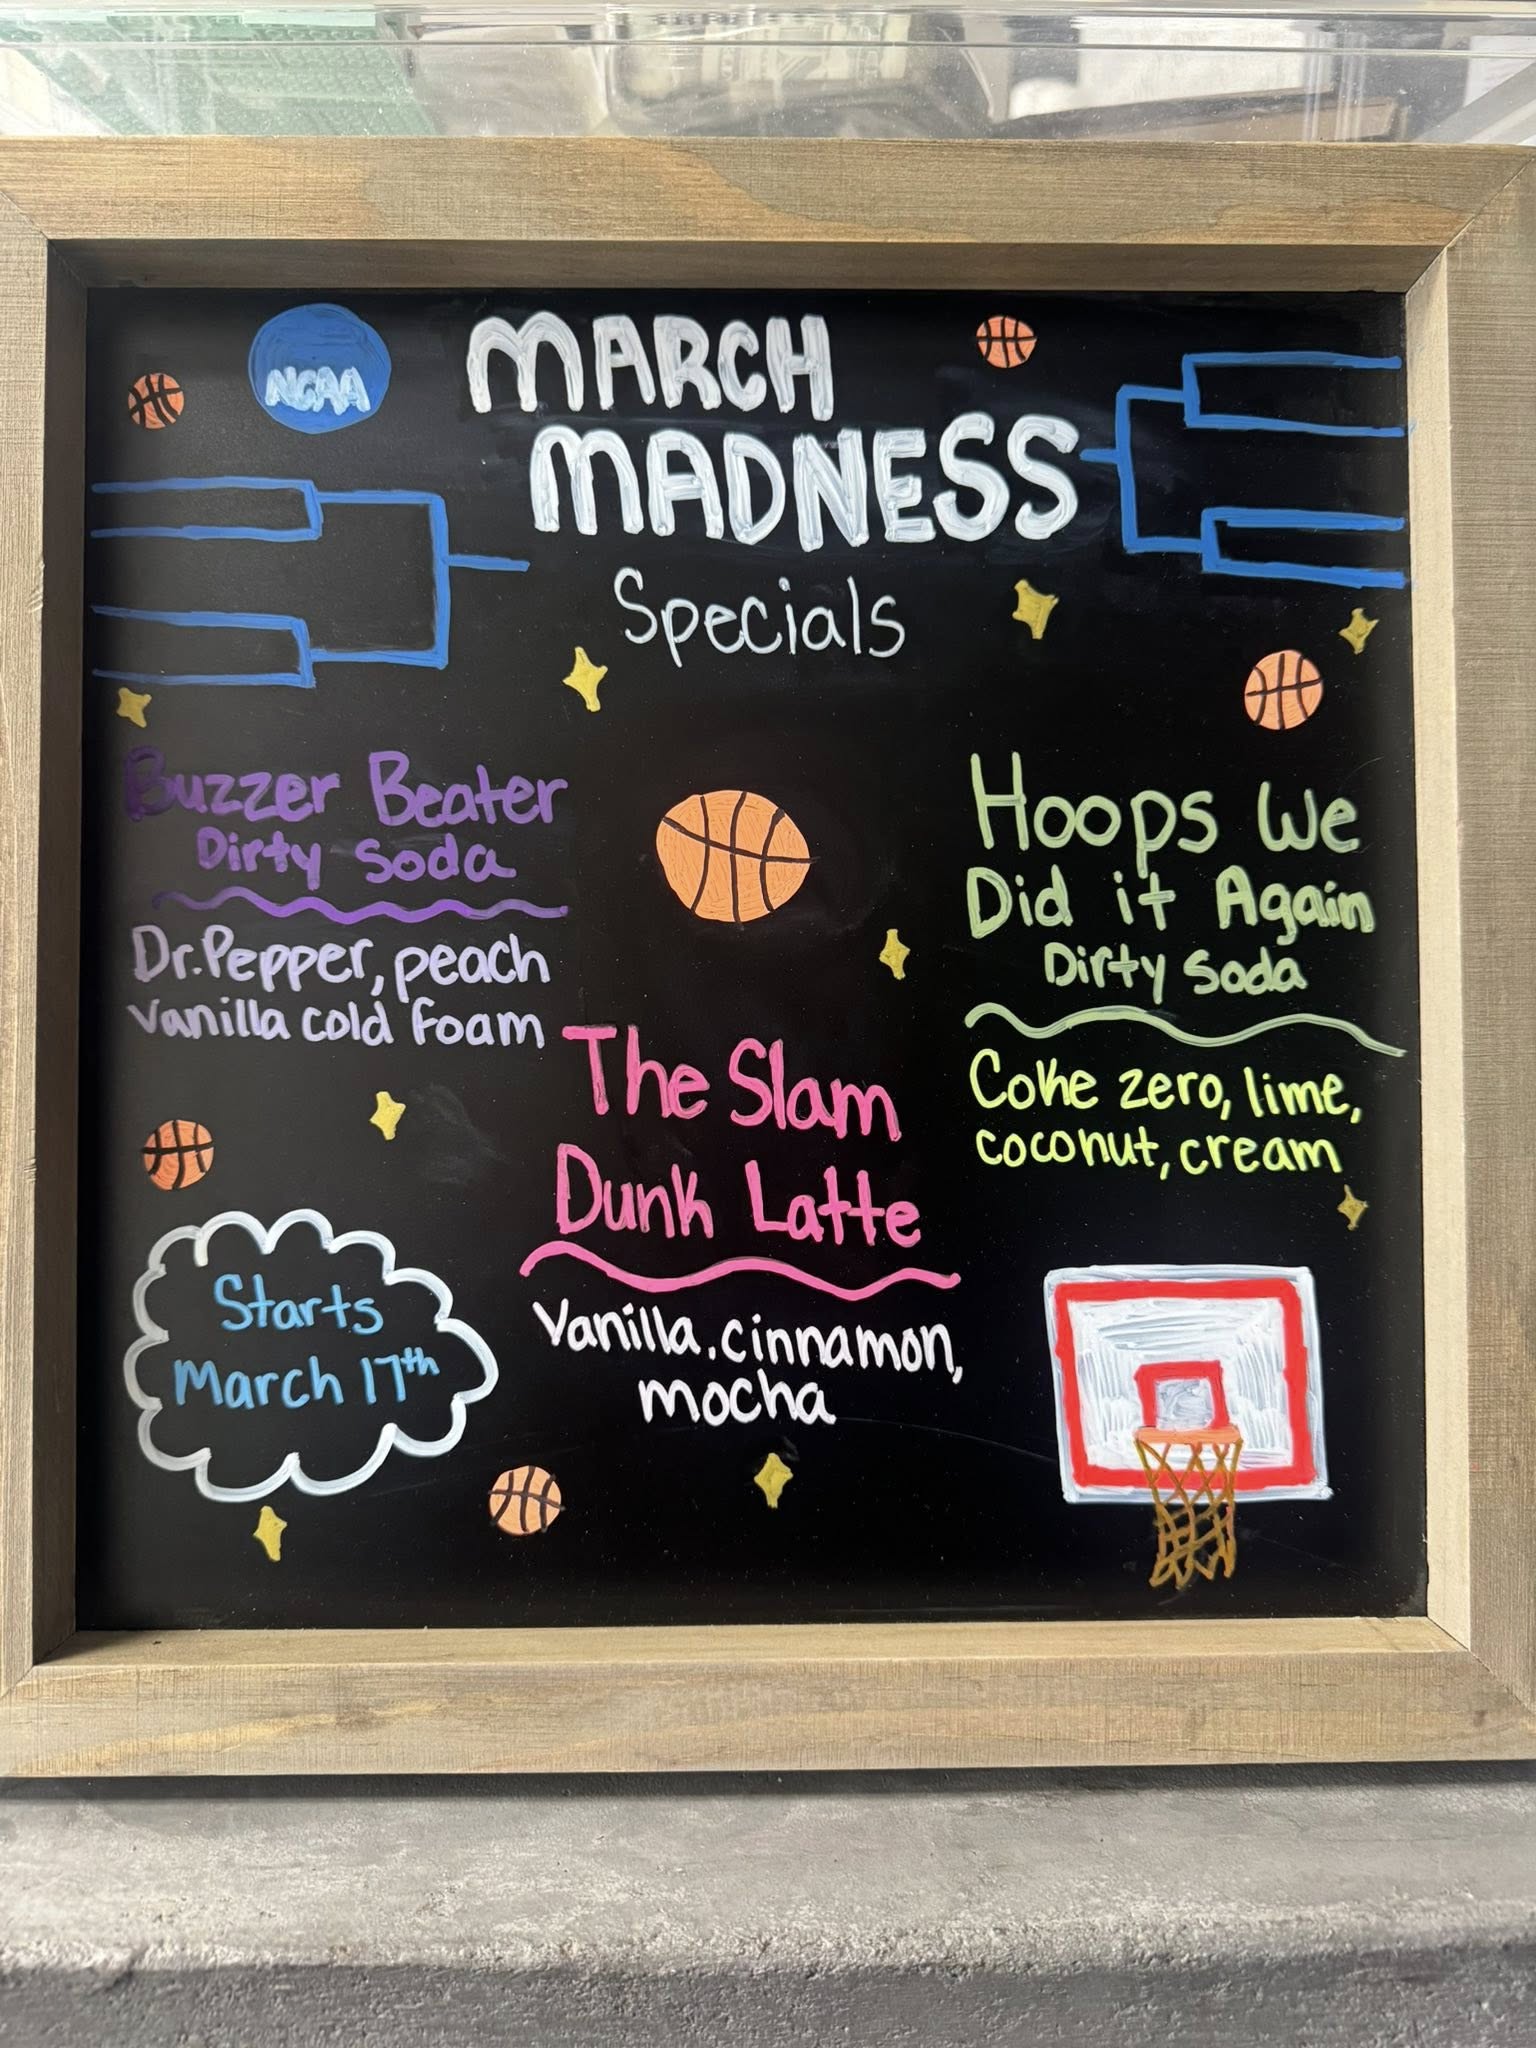 NCAA
MARCH
MADNESS
Specials
Buzzer Beater
Dirty Soda
Dr.Pepper, peach
Vanilla cold foam
Hoops We
Did it Again
Dirty Soda
Coke zero, lime,
coconut, cream
The Slam
Dunk Latte
Vanilla, cinnamon,
mocha
Starts
March 17th